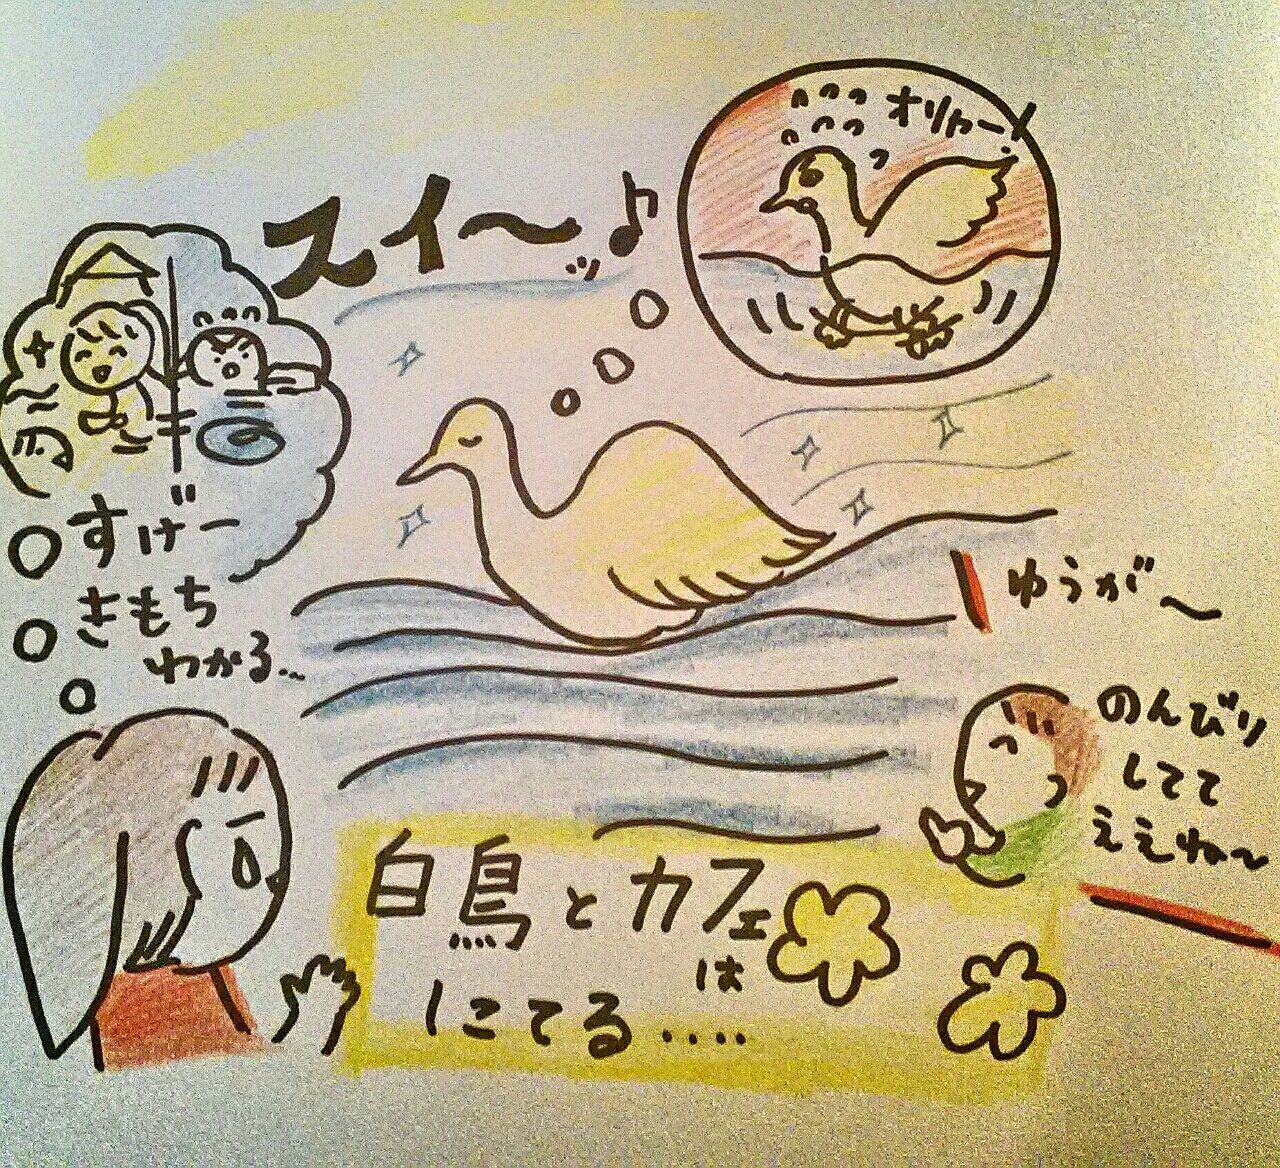 オリャー!
スイ〜ッ♪
すげー
きもち
わかる…
ゆうが〜
のんびり
してて
ええね〜
白鳥とカフェ
は
にてる‥‥